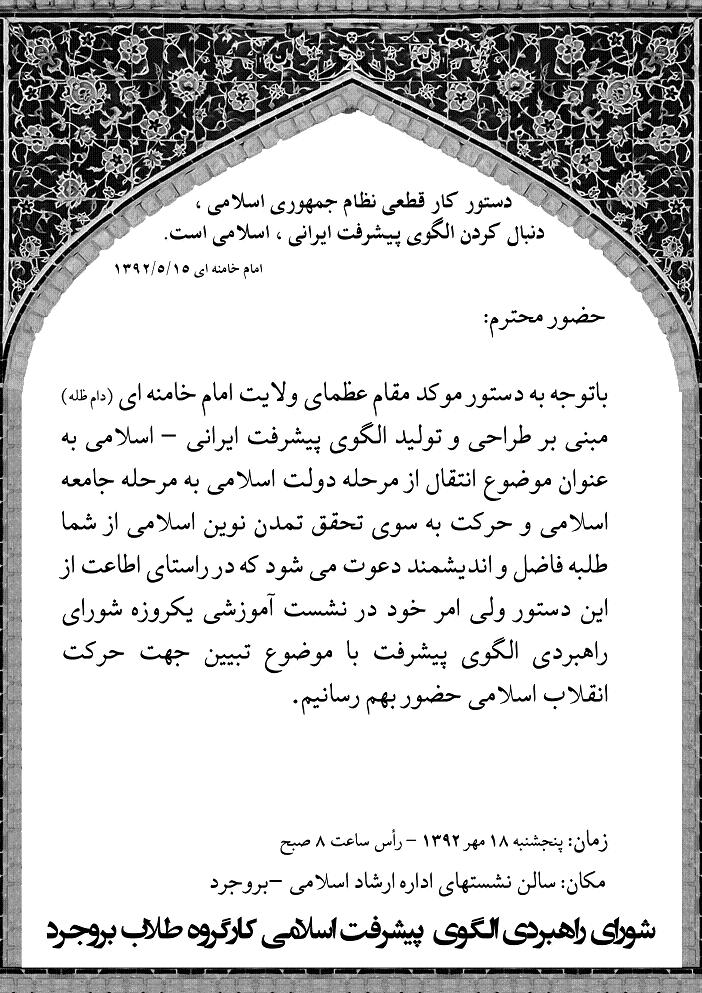 دستور کار قطعی نظام جمهوری اسلامی ،
دنبال کردن الگوی پیشرفت ایرانی ، اسلامی است.
امام خامنه ای ۱۳۹۲/۵/۱۵
حضور محترم:
باتوجه به دستور موکد مقام عظمای ولایت امام خامنه ای (دام ظله)
مبنی بر طراحی و تولید الگوی پیشرفت ایرانی – اسلامی به
عنوان موضوع انتقال از مرحله دولت اسلامی به مرحله جامعه
اسلامی و حرکت به سوی تحقق تمدن نوین اسلامی از شما
طلبه فاضل و اندیشمند دعوت می شود که در راستای اطاعت از
این دستور ولی امر خود در نشست آموزشی یکروزه شورای
راهبردی الگوی پیشرفت با موضوع تبیین جهت حرکت
انقلاب اسلامی حضور بهم رسانیم.
زمان: پنجشنبه ۱۸ مهر ۱۳۹۲ – رأس ساعت ۸ صبح
مکان: سالن نشستهای اداره ارشاد اسلامی –بروجرد
شورای راهبردی الگوی پیشرفت اسلامی کارگروه طلاب بروجرد